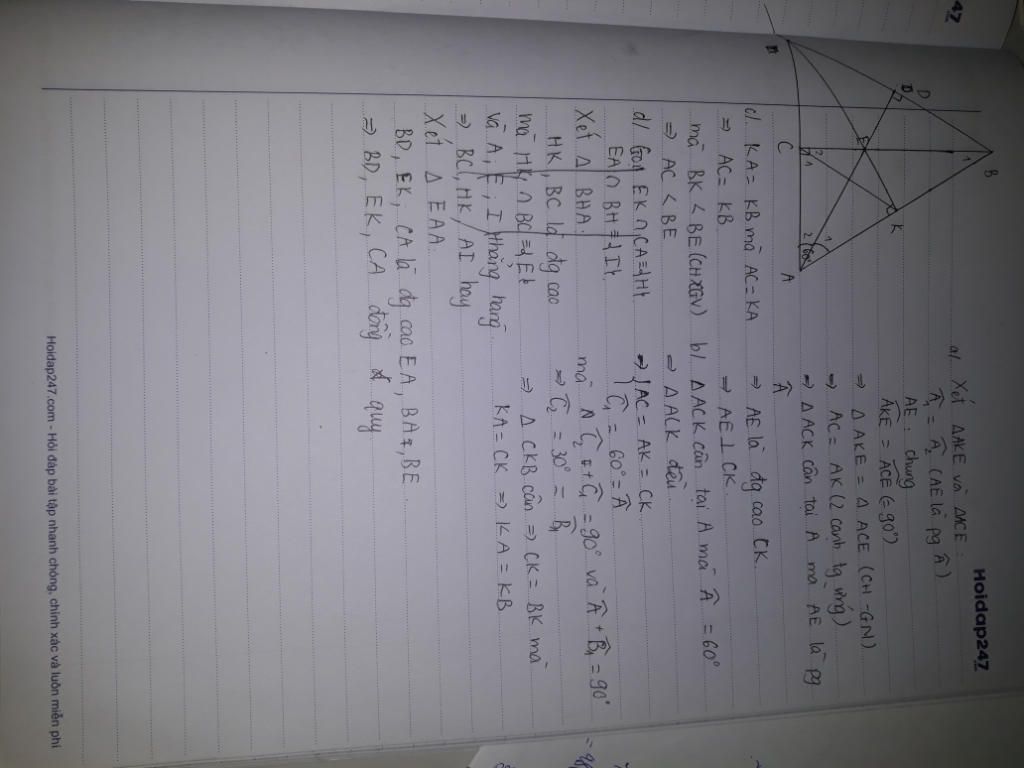 47
Hoidap247
B
D
K
E
C
A
a/ Xét ΔAKE và ΔACE :
Â₁ = Â₂ (AE là pg Â)
AE : chung
AKE = ACE (= 90°)
⇒ ΔAKE = ΔACE (CH - GN)
⇒ AC = AK (2 cạnh tg ứng)
⇒ ΔACK cân tại A mà AE là pg
Â
⇒ AE là đg cao CK.
⇒ AE ⊥ CK.
b/ ΔACK cân tại A mà Â = 60°
⇒ ΔACK đều
⇒ AC = AK = CK
Ĉ₁ = 60° = Â
mà Ĉ₂ + Ĉ₁ = 90° và Â + B̂₁ = 90°
⇒ Ĉ₂ = 30° = B̂₁
⇒ Δ CKB cân ⇒ CK = BK mà
KA = CK ⇒ KA = KB
c/. KA = KB mà AC = KA
⇒ AC = KB
mà BK < BE (CH>CGV)
⇒ AC < BE
d/ Gọi EK ∩ CA = {H}
EA ∩ BH = {I}
Xét Δ BHA.
HK, BC là đg cao
mà HK ∩ BC = {E}
và A; E; I thẳng hàng.
⇒ BC, HK, AI hay
Xét Δ EAA.
BD, EK, CA là đg cao EA, BA, BE.
⇒ BD, EK, CA đồng quy
Hoidap247.com - Hỏi đáp bài tập nhanh chóng, chính xác và luôn miễn phí